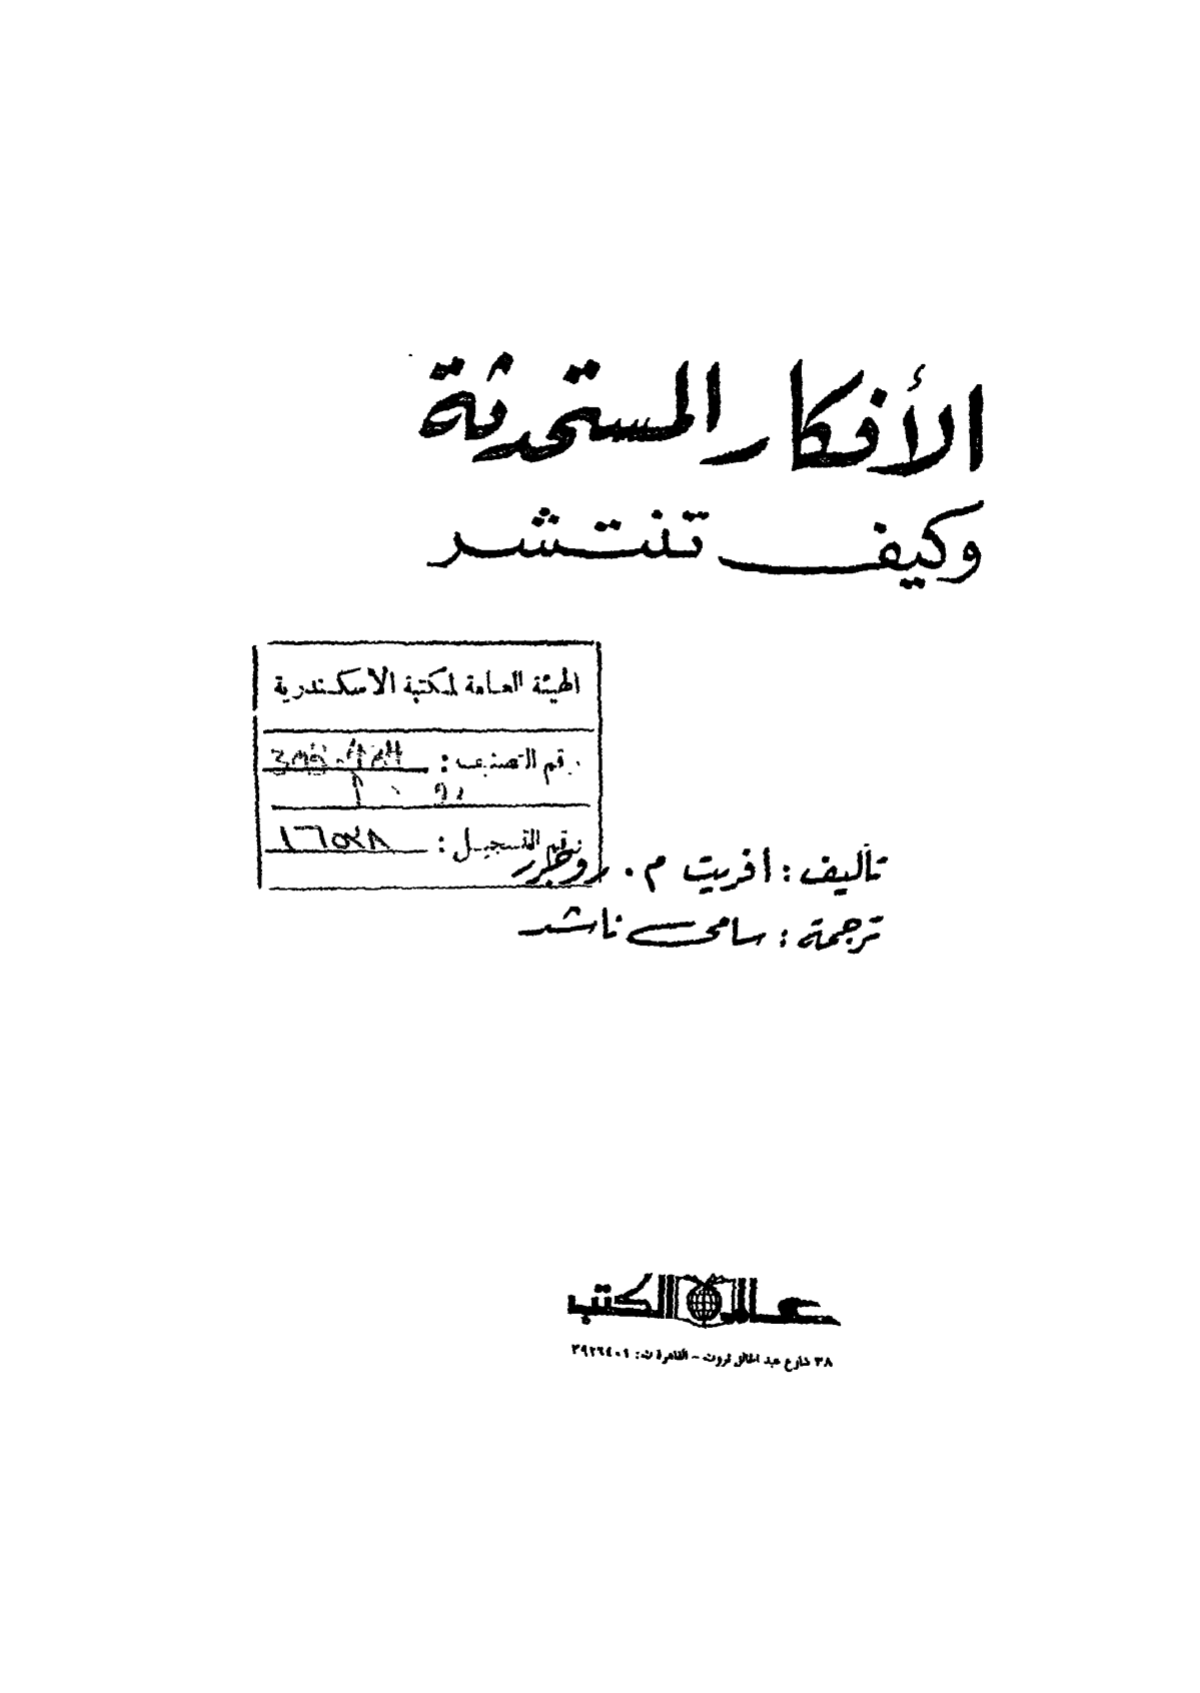 الأفكار المستحدثة
وكيف تنتشر
الهيئة العامة لمكتبة الاسكندرية
رقم التصنيف :
رقم التسجيل : ١٦٥٢٨
تأليف : افريت م . روجرز
ترجمة : سامى ناشد
عالم الكتب
٣٨ شارع عبد الخالق ثروت - القاهرة ت: ٣٩٢٦٤٠١